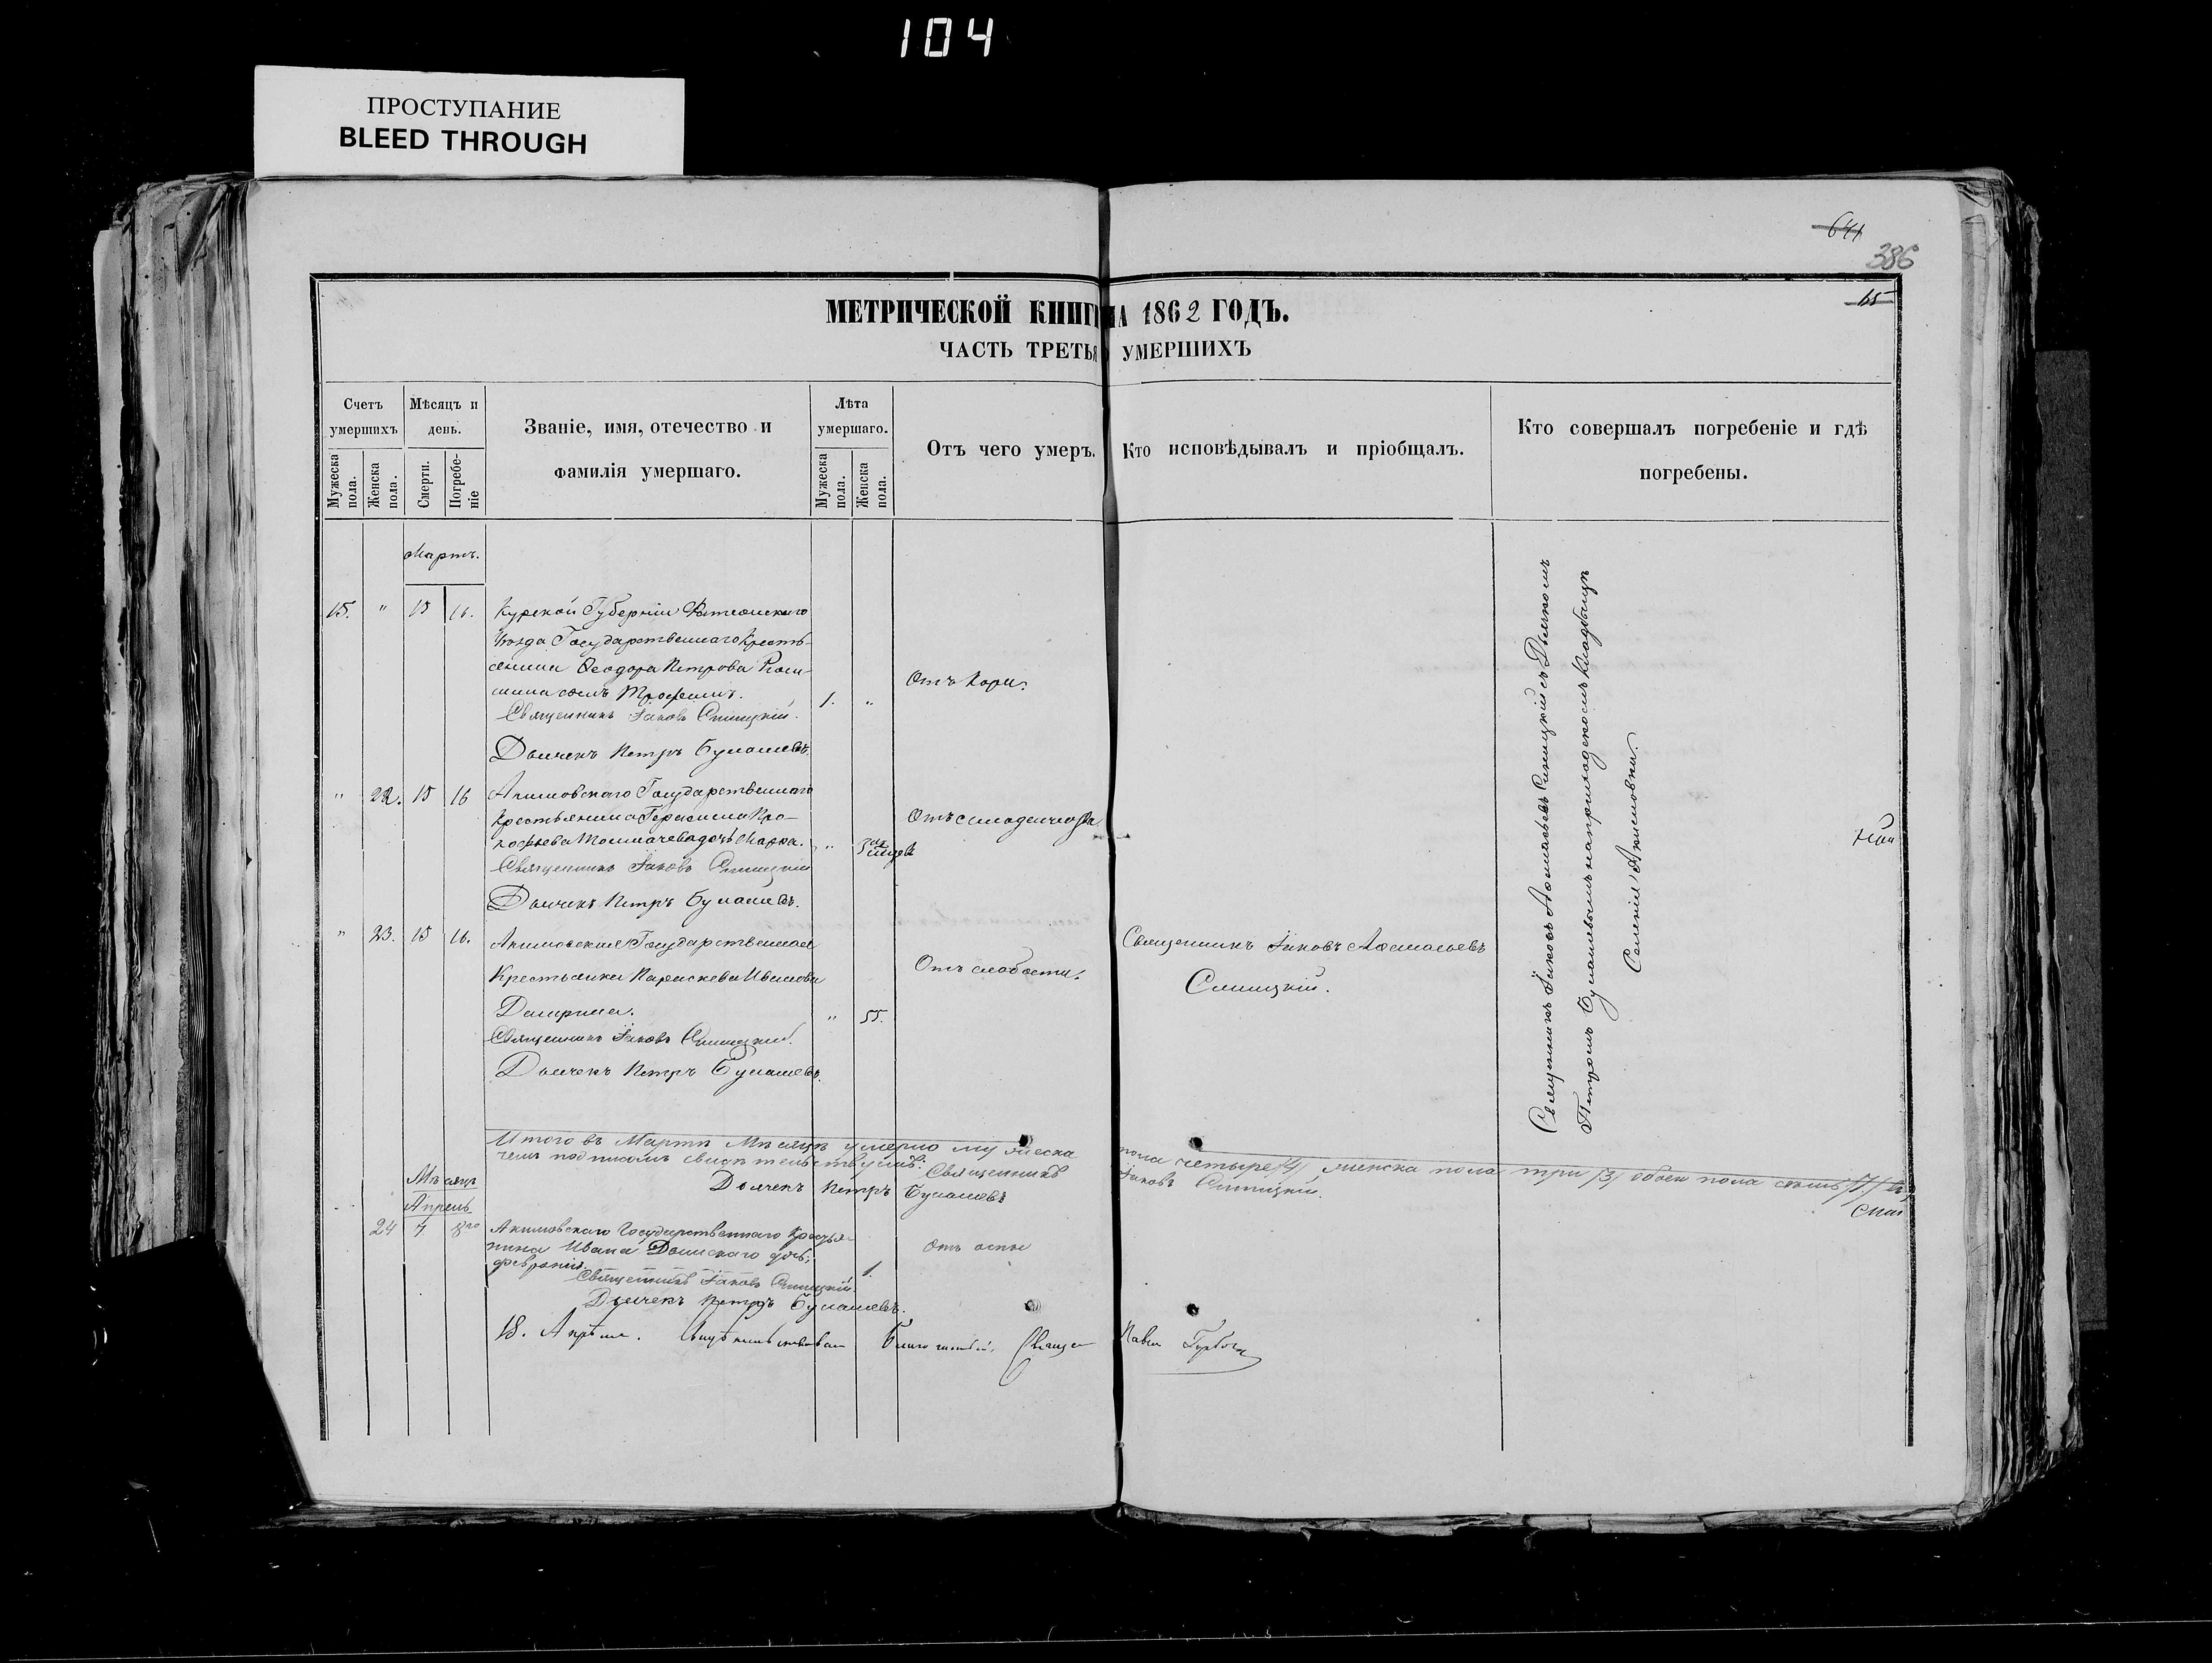 104
ПРОСТУПАНИЕ
BLEED THROUGH
641
386
15
МЕТРИЧЕСКОЙ КНИГИ НА 1862 ГОДЪ.
ЧАСТЬ ТРЕТЬЯ УМЕРШИХЪ
Счетъ умершихъ
Мужеска пола.
Женска пола.
Мѣсяцъ и день.
Смерти.
Погребеніе
Званіе, имя, отечество и фамилія умершаго.
Лѣта умершаго.
Мужеска пола.
Женска пола.
Отъ чего умеръ.
Кто исповѣдывалъ и пріобщалъ.
Кто совершалъ погребеніе и гдѣ погребены.
Мартъ.
15. " 15 16. Курской Губерніи Фатежскаго
Уѣзда Государственнаго Кресть-
янина Ѳеодора Петрова
сынъ Трофимъ. 1. " Отъ Кори.
Священникъ Іаковъ Синицкій.
Дьячекъ Петръ Булашевъ.
" 22. 15 16 Акимовскаго Государственнаго
Крестьянина Герасима Про-
кофьева Толмачева дочь Марѳа. "
Священникъ Іаковъ Синицкій
Дьячекъ Петръ Булашевъ.
" 23. 15 16. Акимовская Государственная
Крестьянка Параскева Иванова
" 55. Отъ слабости.
Священникъ Іаковъ Аѳанасьевъ
Синицкій.
Священникъ Іаковъ Синицкій.
Дьячекъ Петръ Булашевъ.
Священникъ Іаковъ Аѳанасьевъ Синицкій съ Дьячкомъ
Петромъ Булашевымъ на приходскомъ Кладбищѣ
Селенія Акимовки.
Итого въ Мартѣ Мѣсяцѣ умерло мужеска пола четыре /4/ женска пола три /3/ обоего пола семь /7/
чемъ подписомъ свидѣтельствуемъ: Священникъ Іаковъ Синицкій.
Дьячекъ Петръ Булашевъ
Мѣсяцъ
Апрель
24 7 8го Акимовскаго Государственнаго Крестья-
нина Ивана Донскаго дочь,
Февронія. 1. Отъ оспы
Священникъ Іаковъ Синицкій.
Дьячекъ Петръ Булашевъ.
18. Апрѣля. Благочинный, Павелъ